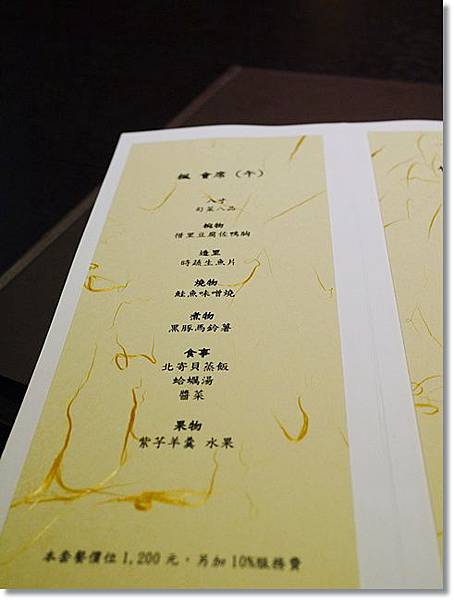 楓 會席 (午)
八寸
旬菜八品
椀物
借里豆腐佐鴨胸
造里
時蔬生魚片
燒物
鮭魚味噌燒
煮物
黑豚馬鈴薯
食事
北寄貝蒸飯
蛤蠣湯
醬菜
果物
紫芋羊羹 水果
本套餐價位1,200元,另加10%服務費